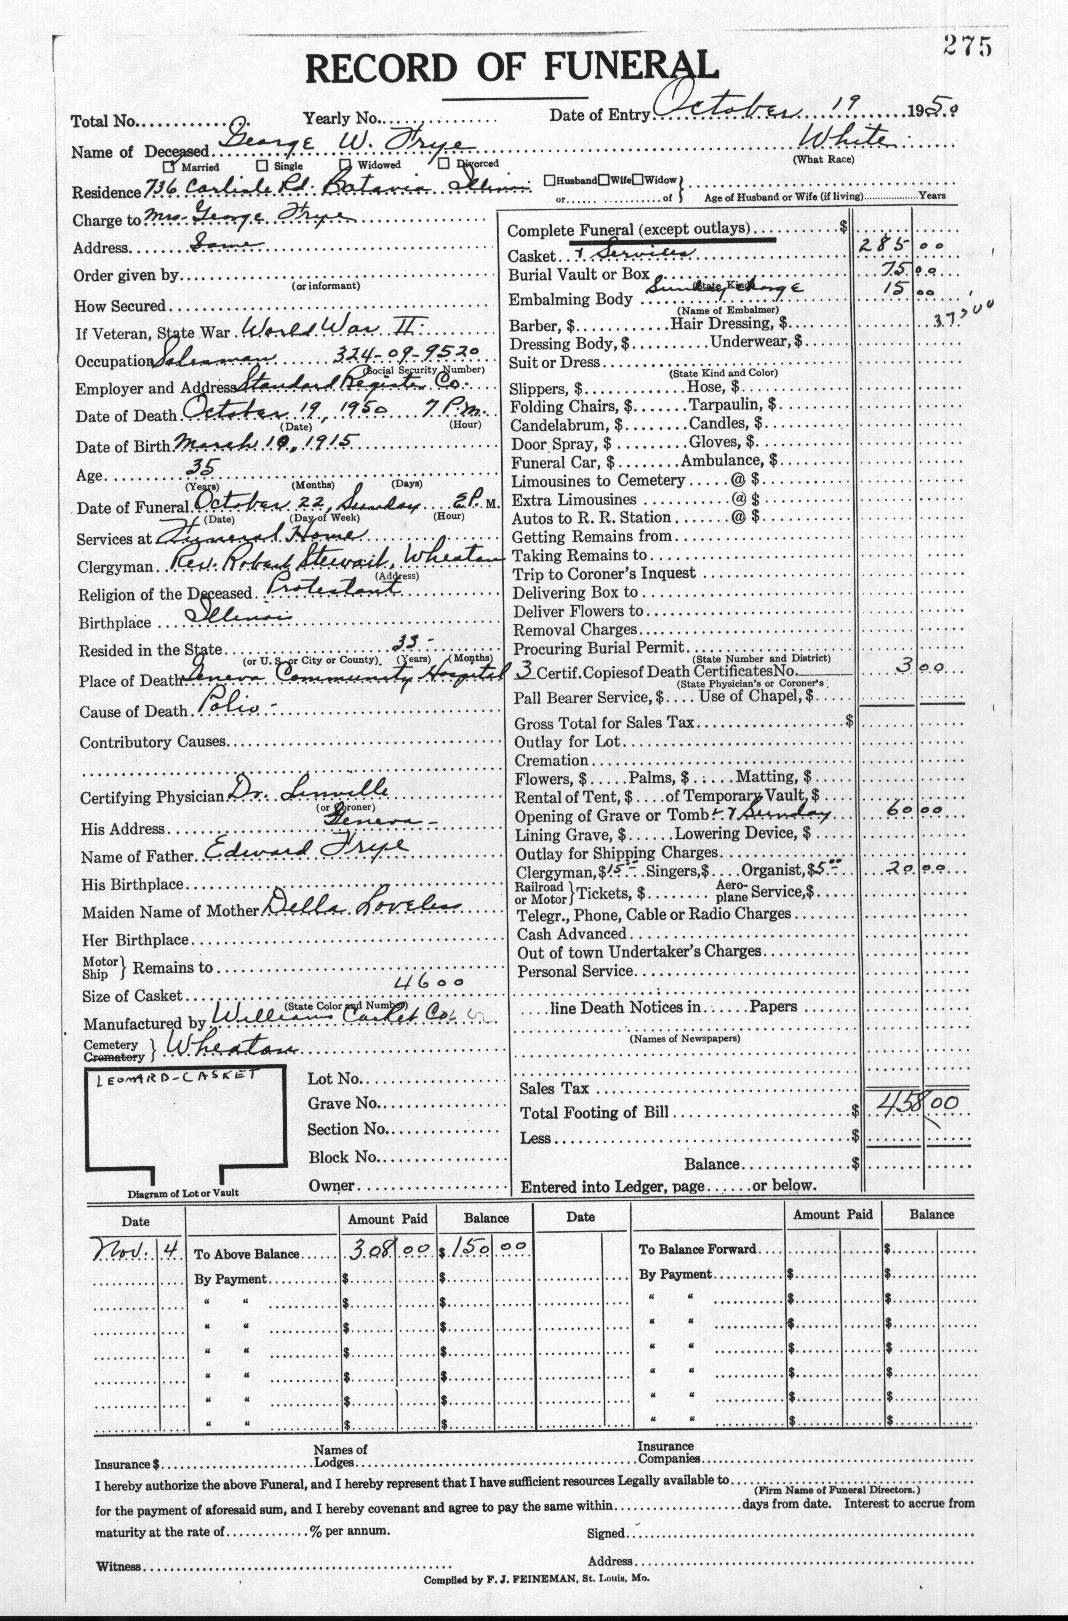 275
RECORD OF FUNERAL
Total No. Yearly No. Date of Entry October 19 1950
Name of Deceased George W. Frye White
(What Race)
Married Single Widowed Divorced
Residence 736 Carlisle Rd. Batavia Illinois Husband Wife Widow }
or of } Age of Husband or Wife (if living) Years
Charge to Mrs. George Frye
Address Same
Order given by
(or informant)
How Secured
If Veteran, State War World War II.
Occupation Salesman 324-09-9520
(Social Security Number)
Employer and Address Standard Register Co.
Date of Death October 19, 1950 7 P.M.
(Date) (Hour)
Date of Birth March 19, 1915
Age 35
(Years) (Months) (Days)
Date of Funeral October 22, Sunday P. M.
(Date) (Day of Week) (Hour)
Services at Funeral Home
Clergyman Rev. Robert Stewart, Wheaton
(Address)
Religion of the Deceased Protestant
Birthplace Illinois
Resided in the State 33-
(or U. S. or City or County) (Years) (Months)
Place of Death Geneva Community Hospital
Cause of Death Polio-
Contributory Causes
Certifying Physician Dr. Linville
(or Coroner)
His Address Geneva-
Name of Father Edward Frye
His Birthplace
Maiden Name of Mother Della Loveless
Her Birthplace
Motor Ship } Remains to
Size of Casket 4600
(State Color and Number)
Manufactured by Williams Casket Co.
Cemetery
Crematory } Wheaton
LEONARD-CASKET
Diagram of Lot or Vault
Lot No.
Grave No.
Section No.
Block No.
Owner
Complete Funeral (except outlays) $
Casket + Services 285 00
Burial Vault or Box 75 00
(State Kind)
Embalming Body Sunday charge 15 00
(Name of Embalmer)
375 00
Barber, $ Hair Dressing, $
Dressing Body, $ Underwear, $
Suit or Dress
(State Kind and Color)
Slippers, $ Hose, $
Folding Chairs, $ Tarpaulin, $
Candelabrum, $ Candles, $
Door Spray, $ Gloves, $
Funeral Car, $ Ambulance, $
Limousines to Cemetery @ $
Extra Limousines @ $
Autos to R. R. Station @ $
Getting Remains from
Taking Remains to
Trip to Coroner's Inquest
Delivering Box to
Deliver Flowers to
Removal Charges
Procuring Burial Permit
(State Number and District)
3 Certif. Copies of Death Certificates No. 3 00
(State Physician's or Coroner's
Pall Bearer Service, $ Use of Chapel, $
Gross Total for Sales Tax $
Outlay for Lot
Cremation
Flowers, $ Palms, $ Matting, $
Rental of Tent, $ of Temporary Vault, $
Opening of Grave or Tomb Sunday 60 00
Lining Grave, $ Lowering Device, $
Outlay for Shipping Charges
Clergyman, $ 15 Singers, $ Organist, $ 5 00 20 00
Railroad or Motor } Tickets, $ Aeroplane Service, $
Telegr., Phone, Cable or Radio Charges
Cash Advanced
Out of town Undertaker's Charges
Personal Service
line Death Notices in Papers
(Names of Newspapers)
Sales Tax
Total Footing of Bill $ 458 00
Less $
Balance $
Entered into Ledger, page or below.
Date Amount Paid Balance Date Amount Paid Balance
Nov. 4 To Above Balance 308 00 $ 150 00 To Balance Forward $
By Payment $ $ By Payment $ $
" " $ $ " " $ $
" " $ $ " " $ $
" " $ $ " " $ $
" " $ $ " " $ $
" " $ $ " " $ $
" " $ $ " " $ $
Insurance $ Names of Lodges Insurance Companies
I hereby authorize the above Funeral, and I hereby represent that I have sufficient resources Legally available to
(Firm Name of Funeral Directors.)
for the payment of aforesaid sum, and I hereby covenant and agree to pay the same within days from date. Interest to accrue from
maturity at the rate of % per annum. Signed
Witness Address
Compiled by F. J. FEINEMAN, St. Louis, Mo.